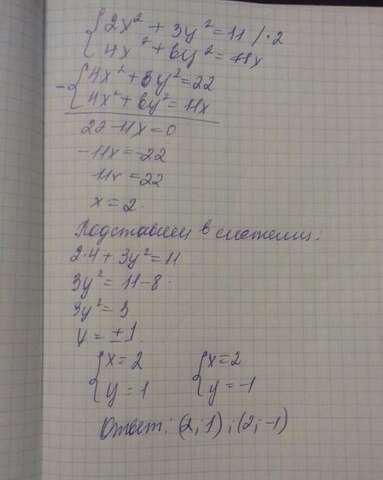 {2x² + 3y² = 11 /·2
{4x² + 6y² = 11x
-{4x² + 6y² = 22
{4x² + 6y² = 11x
22 - 11x = 0
-11x = -22
11x = 22
x = 2.
Подставим в систему:
2·4 + 3y² = 11
3y² = 11 - 8.
3y² = 3
y = ±1.
{x = 2 {x = 2
{y = 1 {y = -1
Ответ: (2; 1); (2; -1)